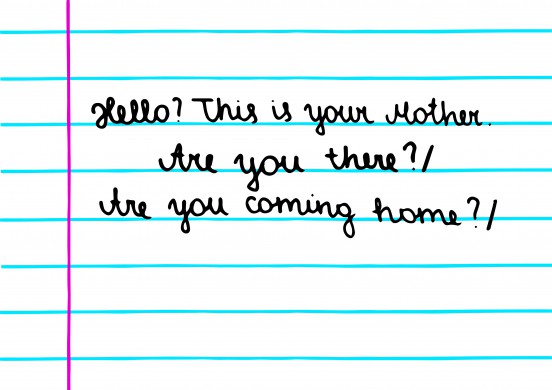 Hello? This is your Mother.
Are you there?/
Are you coming home?/